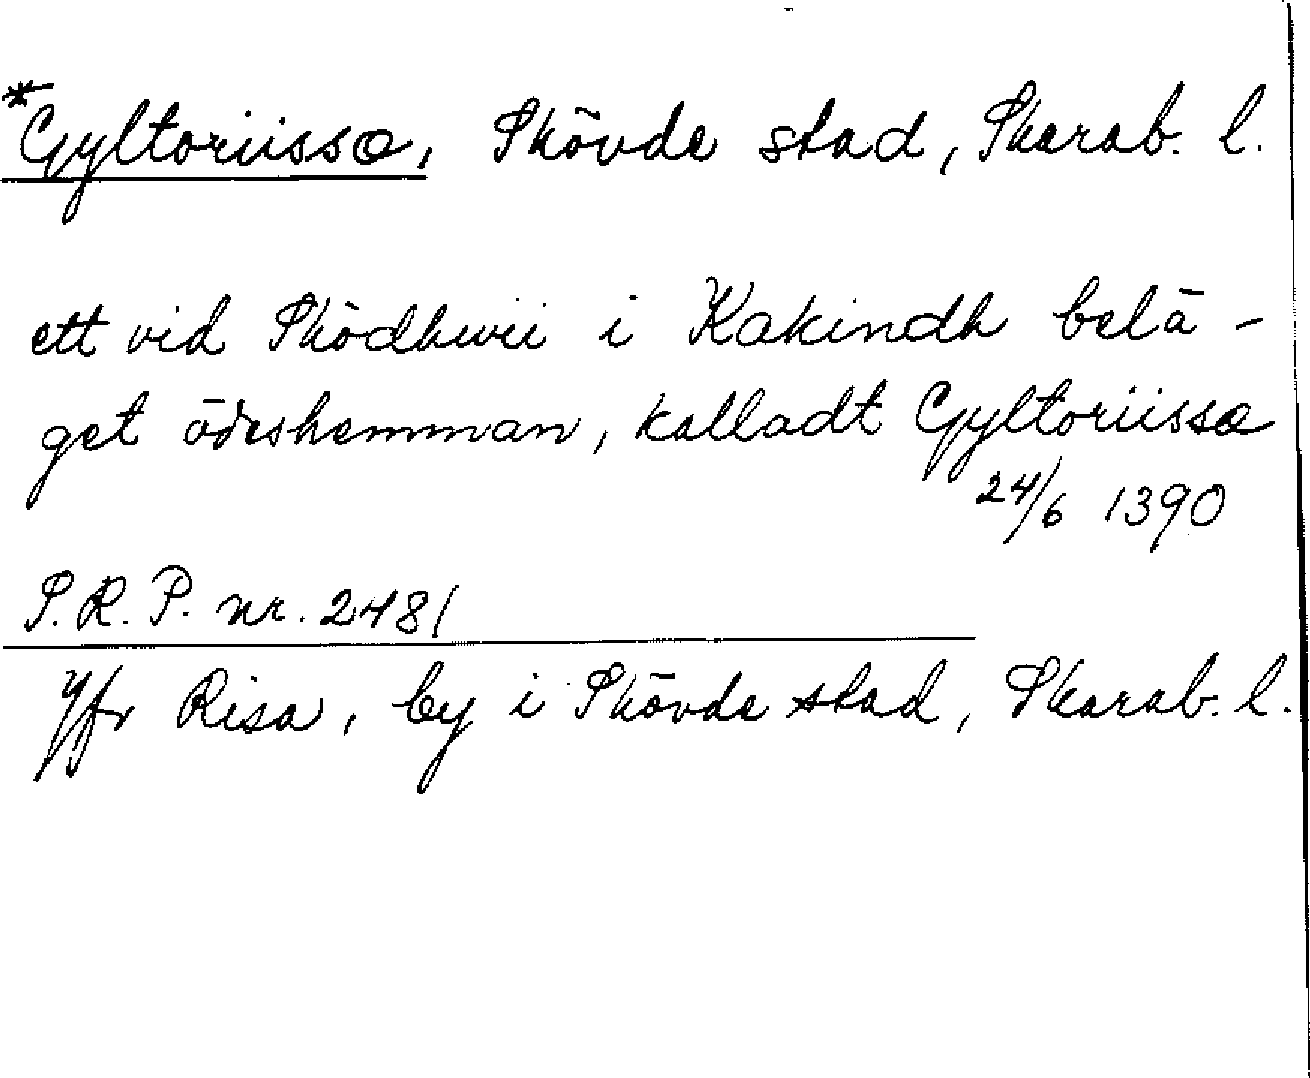 *Gyltoriissa, Skövde stad, Skarab. l.
ett vid Sködhwii i Kakindh belä-
get ödeshemman, kalladt Gyltoriissa
24/6 1390
S.R.P. nr. 2481
Jfr Risa, by i Skövde stad, Skarab. l.